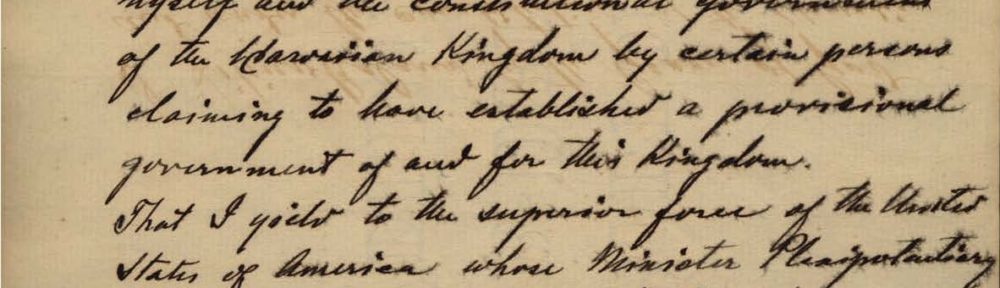 myself and the constitutional government
of the Hawaiian Kingdom by certain persons
claiming to have established a provisional
government of and for this Kingdom.
That I yield to the superior force of the United
States of America whose Minister Plenipotentiary